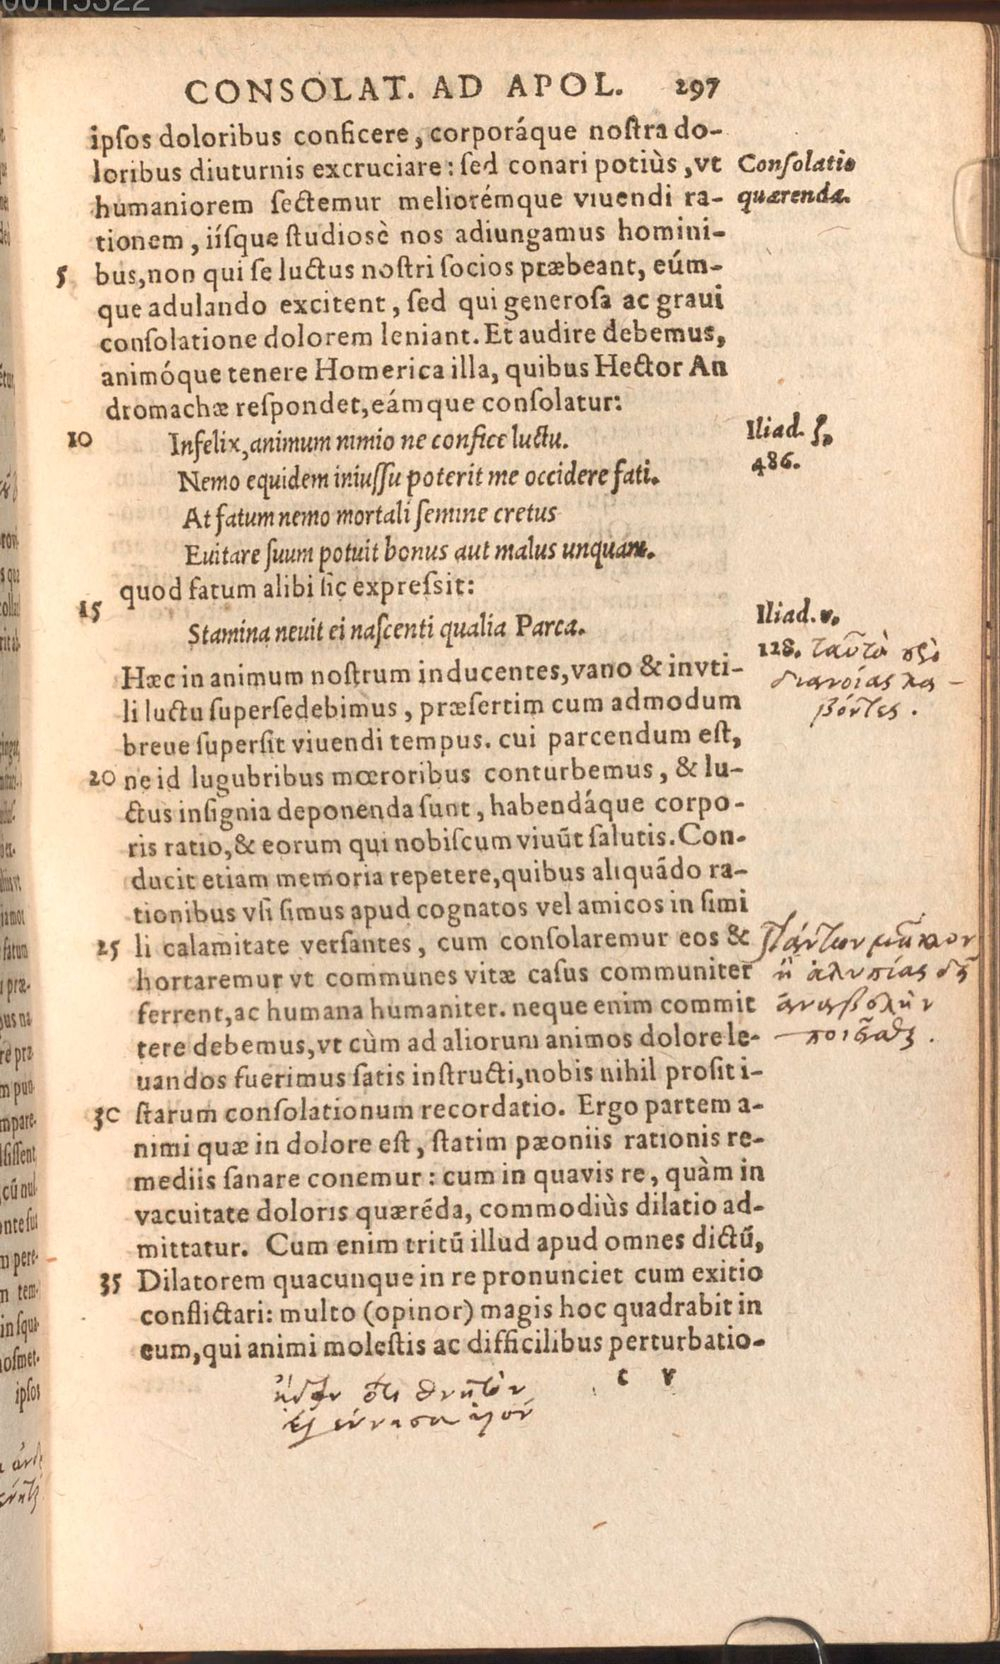 00115322
CONSOLAT. AD APOL. 297
ipſos doloribus conficere, corporáque noſtra do-
loribus diuturnis excruciare: ſed conari potiùs, vt
Conſolatio
humaniorem ſectemur meliorémque viuendi ra-
quærenda.
tionem, iíſque ſtudioſè nos adiungamus homini-
5 bus, non qui ſe luctus noſtri ſocios præbeant, eúm-
que adulando excitent, ſed qui generoſa ac graui
conſolatione dolorem leniant. Et audire debemus,
animóque tenere Homerica illa, quibus Hector An
dromachæ reſpondet, eámque conſolatur:
10 Infelix, animum nimio ne confice luctu.
Iliad. ζ,
486.
Nemo equidem iniuſſu poterit me occidere fati.
At fatum nemo mortali ſemine cretus
Euitare ſuum potuit bonus aut malus unquam.
quod fatum alibi ſic expreſsit:
15 Stamina neuit ei naſcenti qualia Parca.
Iliad. υ,
128. ταῦτὰ πρὸ
διανοίας λα-
βόντες.
Hæc in animum noſtrum inducentes, vano & invti-
li luctu ſuperſedebimus, præſertim cum admodum
breue ſuperſit viuendi tempus. cui parcendum eſt,
20 ne id lugubribus mœroribus conturbemus, & lu-
ctus inſignia deponenda ſunt, habendáque corpo-
ris ratio, & eorum qui nobiſcum viuūt ſalutis. Con-
ducit etiam memoria repetere, quibus aliquādo ra-
tionibus vſi ſimus apud cognatos vel amicos in ſimi
25 li calamitate verſantes, cum conſolaremur eos &
hortaremur vt communes vitæ caſus communiter
ferrent, ac humana humaniter. neque enim commit
tere debemus, vt cùm ad aliorum animos dolore le-
uandos fuerimus ſatis inſtructi, nobis nihil proſit i-
30 ſtarum conſolationum recordatio. Ergo partem a-
nimi quæ in dolore eſt, ſtatim pæoniis rationis re-
mediis ſanare conemur: cum in quavis re, quàm in
vacuitate doloris quærēda, commodiùs dilatio ad-
mittatur. Cum enim tritū illud apud omnes dictū,
35 Dilatorem quacunque in re pronunciet cum exitio
conflictari: multo (opinor) magis hoc quadrabit in
eum, qui animi moleſtis ac difficilibus perturbatio-
Πάντων μᾶλλον
ἢ ἀλυπίας δεῖ
ἀναβολὴν
ποιεῖσθαι.
c v
ᾔδειν ὅτι θνητὸν